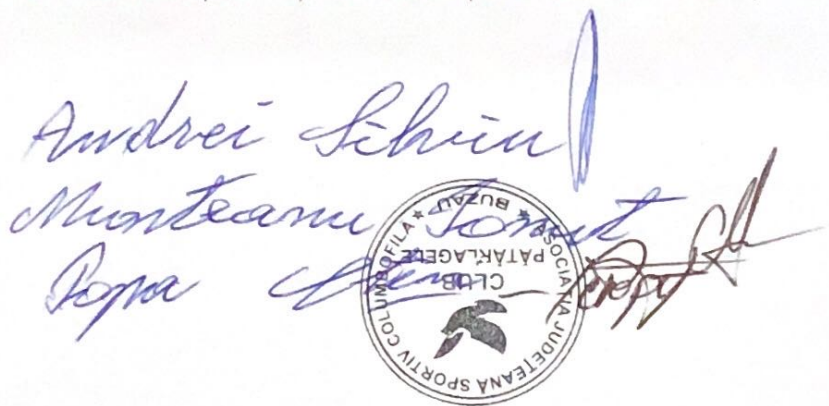 Andrei Silviu
Munteanu Ionuț
Popa
ASOCIAȚIA JUDEȚEANĂ SPORTIV COLUMBOFILA
BUZĂU
CLUB
PĂTÂRLAGELE